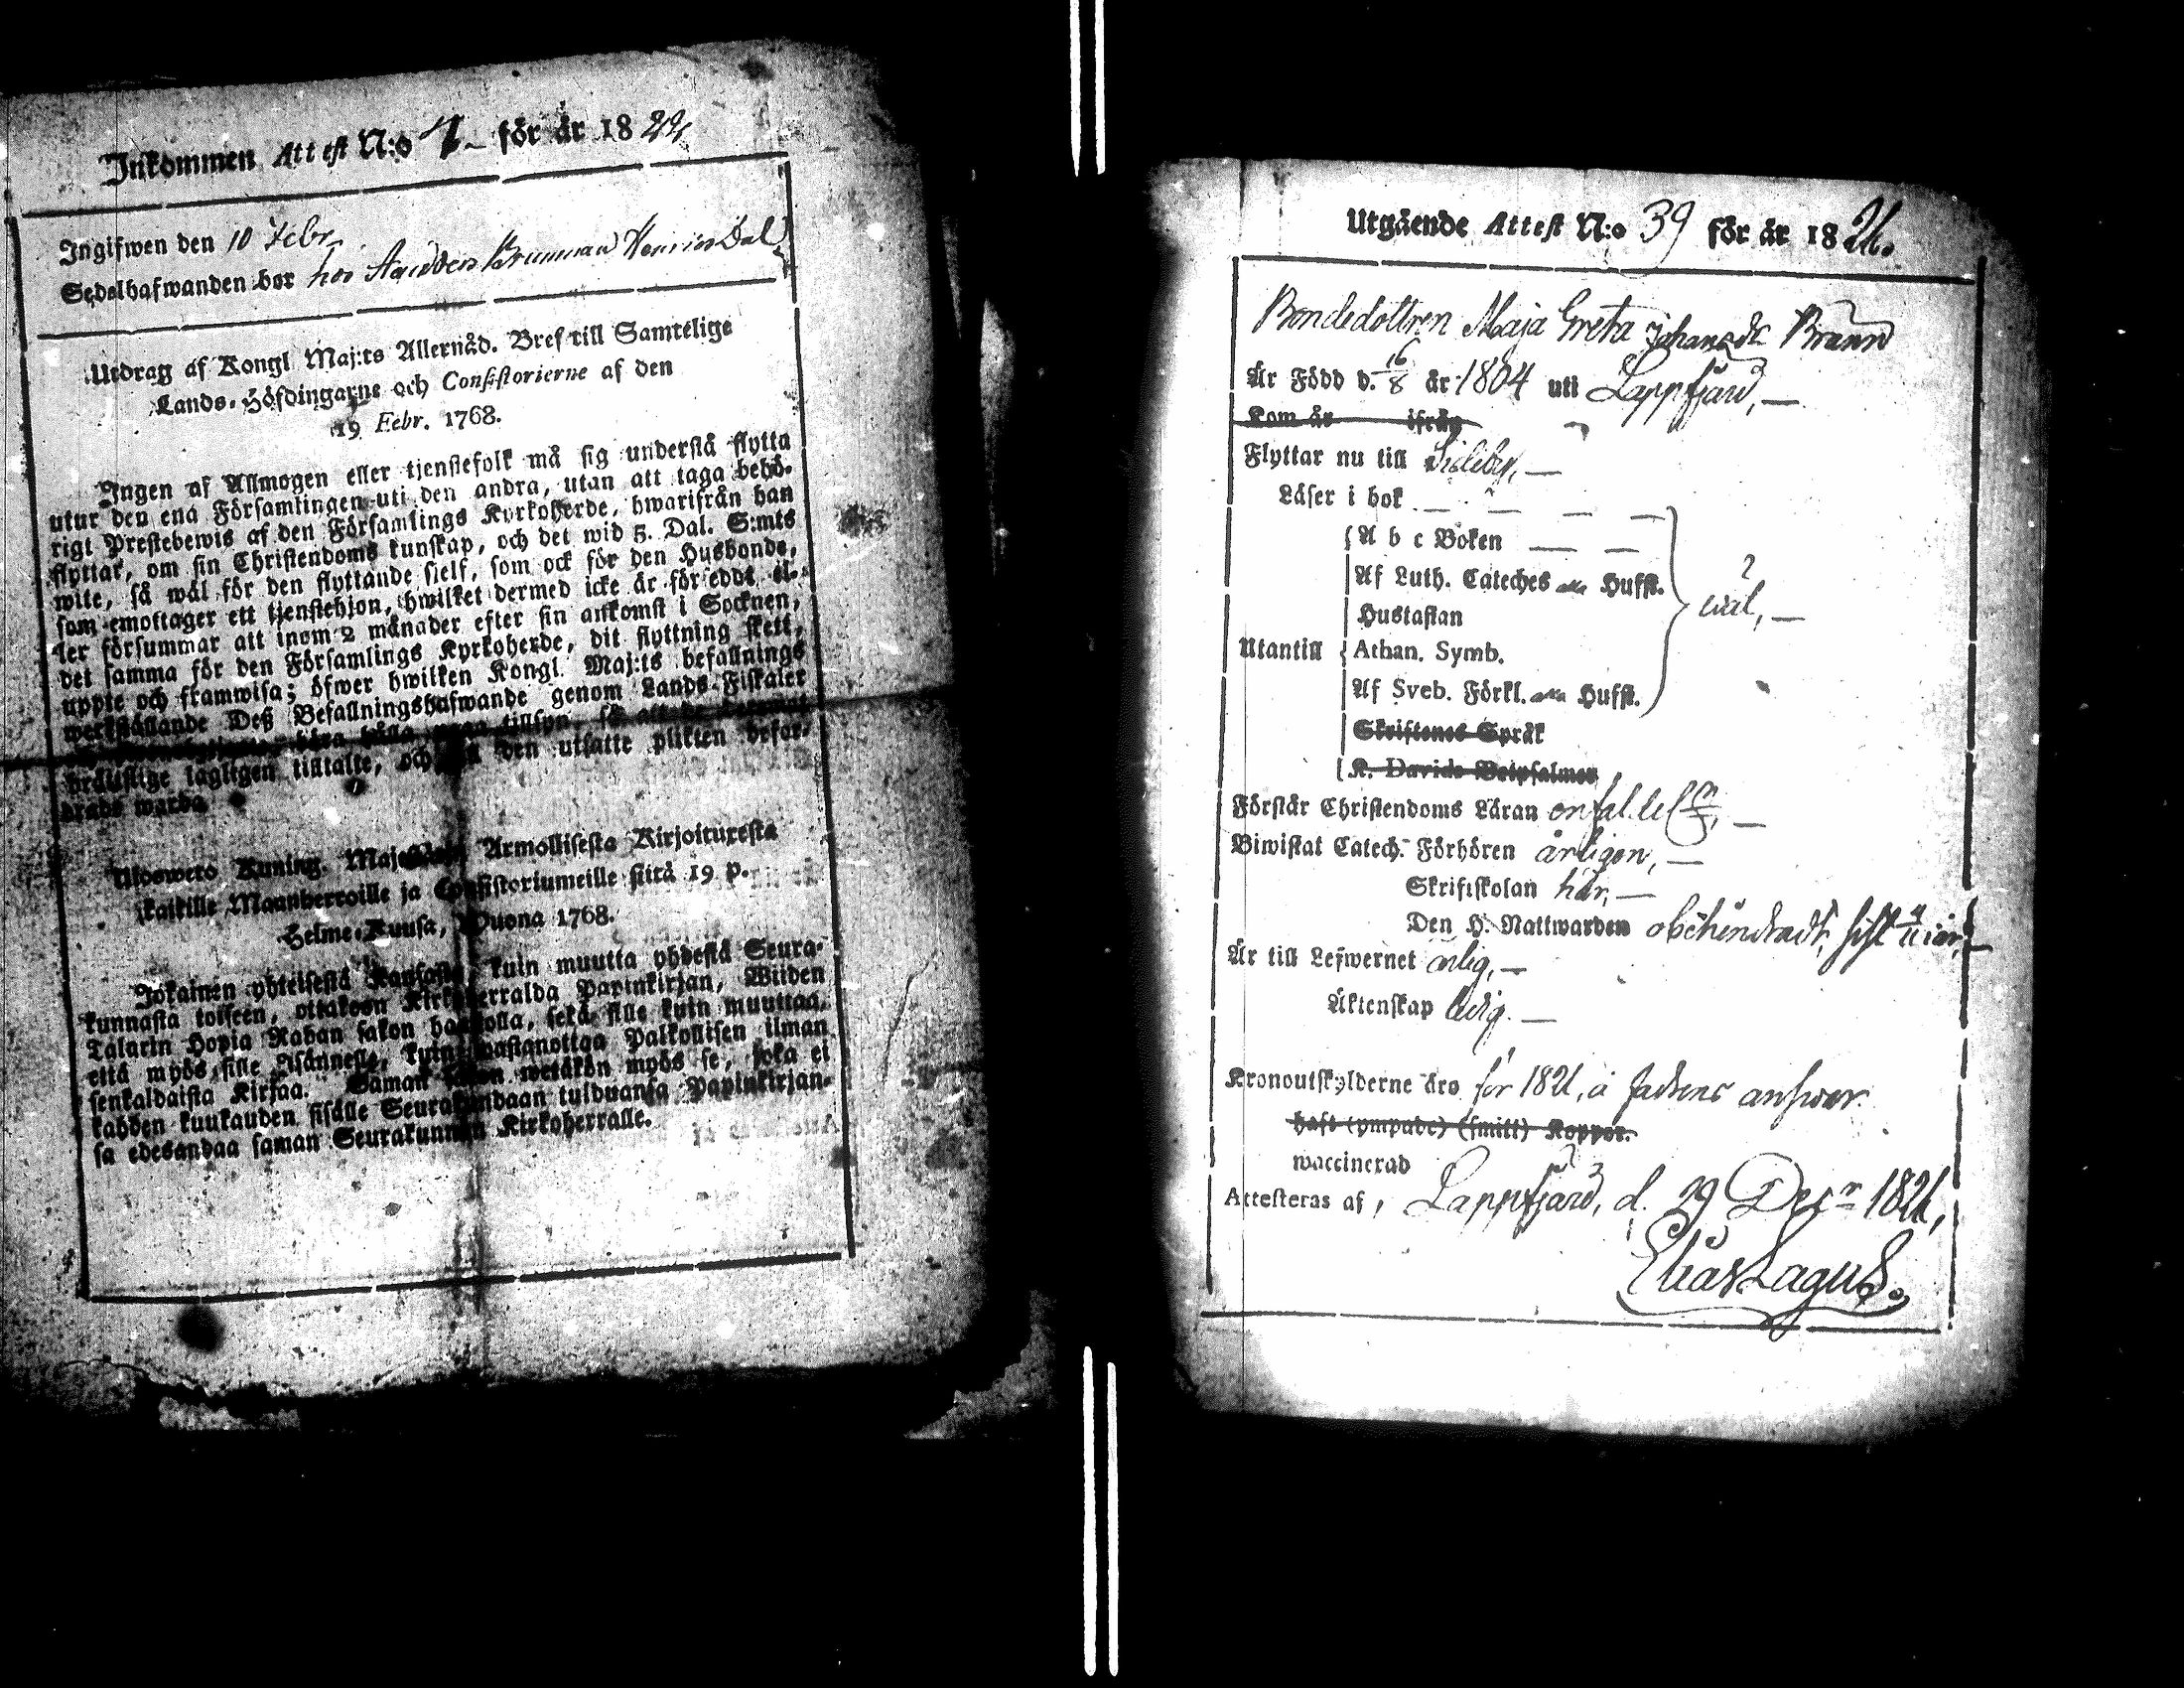 Inkommen Attest N:o 7 för år 1822
Ingifwen den 10 Febr.
Sedelhafwanden bor hos
Utdrag af Kongl Maj:ts Allernåd. Bref till Samtelige
Lands-Höfdingarne och Consistorierne af den
19 Febr. 1768.
Ingen af Allmogen eller tjenstefolk må sig understå flytta
utur den ena Församlingen uti den andra, utan att taga behö-
rigt Prestebewis af den Församlings Kyrkoherde, hwarifrån han
flyttar, om sin Christendoms kunskap, och det wid 5. Dal. S:mts
wite, så wäl för den flyttande sielf, som ock för den Husbonde,
som emottager ett tjenstehjon, hwilket dermed icke är föreddt el-
ler försummar att inom 2 månader efter sin ankomst i Socknen,
det samma för den Församlings Kyrkoherde, dit flyttning skett,
uppte och framwisa; öfwer hwilken Kongl. Maj:ts befallnings
werkställande Deß Befallningshafwande genom Lands-Fiskaler
tillsyn, så att
bräktlige lagligen tilltalte, och den utsatte plikten befor-
drade warda
Ulosweto Kuning. Armollisesta Kirjoituxesta
kaikille Maanherroille ja Consistoriumeille siitä 19 p.
Helme-Kuusa, Wuona 1768.
Jokainen yhteisestä kansasta, kuin muutta yhdestä Seura-
kunnasta toiseen, ottakoon Kirkkoherralda Papinkirjan, Wiiden
Talarin Hopia Rahan sakon haastolla, sekä sille kuin muuttaa,
että myös sille Isännelle, kuin wastanottaa Palkollisen ilman
senkaldaista Kirjaa. Saman sakon wetäkön myös se, joka ei
kahden kuukauden sisälle Seurakundaan tulduansa Papinkirjan-
sa edesandaa saman Seurakunnan Kirkoherralle.
Utgående Attest N:o 39 för år 1821.
Bondedottren Maja Greta Johansdr Brann
Är Född d. 16/8 år 1804 uti Lappfjärd,
Kom år ifrån
Flyttar nu till Sideby,
Läser i bok
A b c Boken
Af Luth. Cateches Hufst.
Hustaflan wäl,
Utantill Athan. Symb.
Af Sveb. Förkl. Hufst.
Skriftenes Språk
K. Davids Botpsalmer
Förstår Christendoms Läran
Biwistat Catech. Förhören årligen,
Skriftskolan här,
Den H. Nattwarden obehindradt, sist
Är till Lefwernet ärlig,
Äktenskap ledig.
Kronoutskylderne äro för 1821, å fadrens answar.
haft (ympade) (smitt) Koppor.
waccinerad
Attesteras af, Lappfjärd, d. 29 Decr 1821,
Elias Lagus.